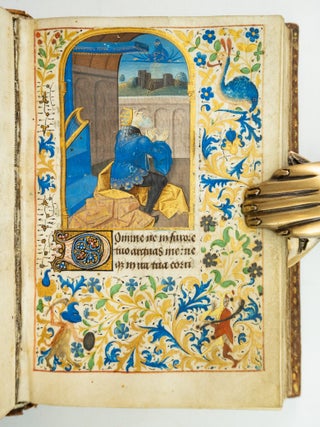 Domine ne in furore
tuo arguas me ne
qꝫ in ira tua corri